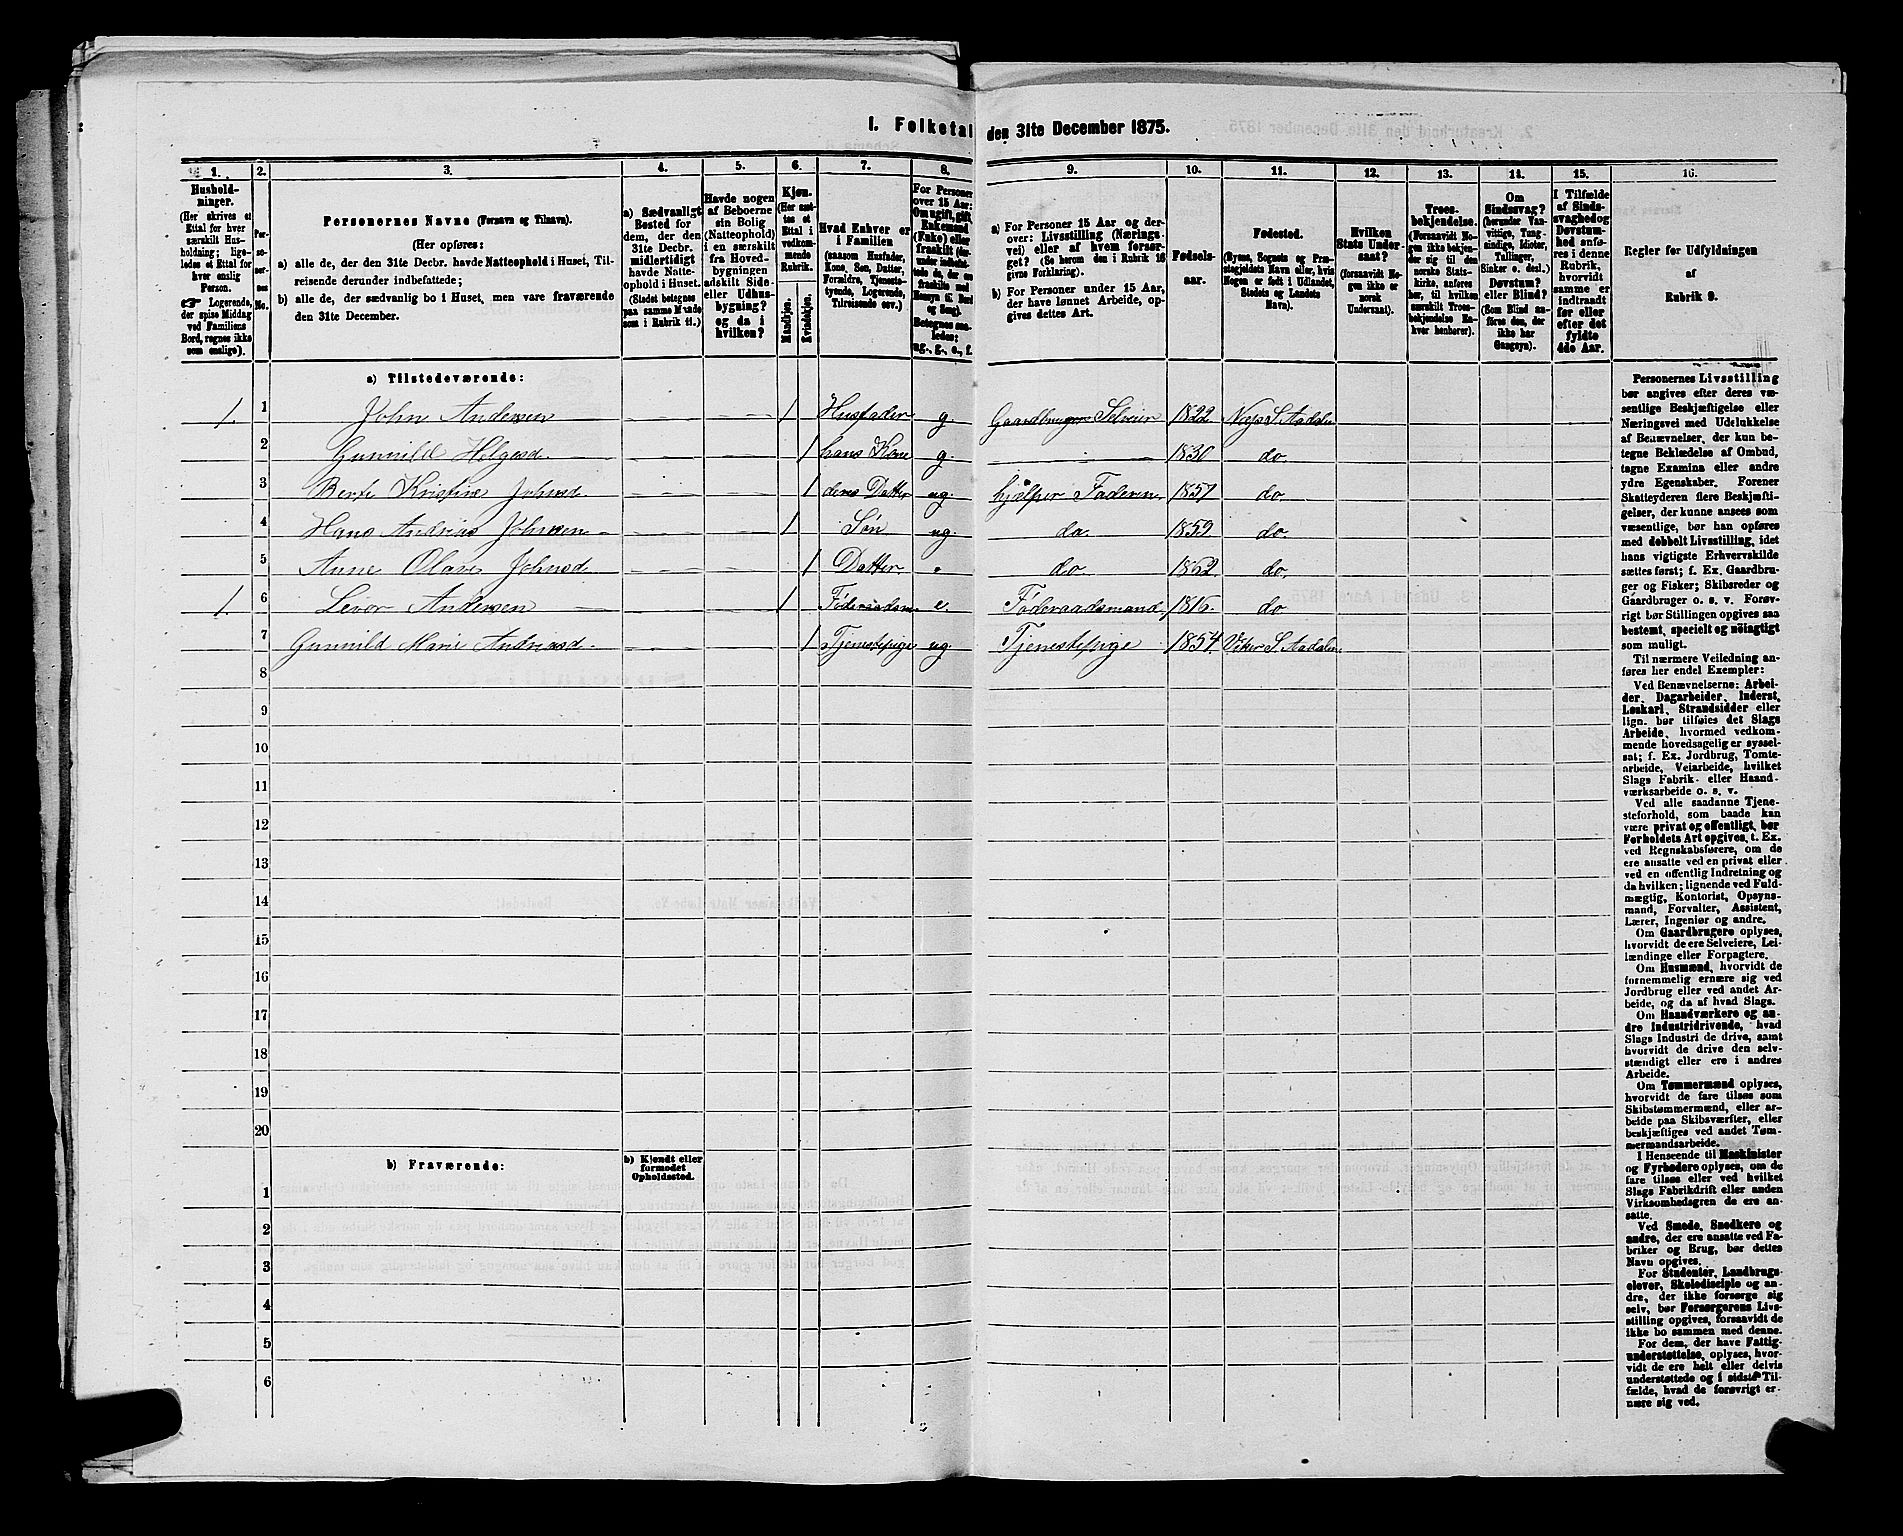 I. Folketal den 31te December 1875.
1. 2. 3. 4. 5. 6. 7. 8. 9. 10. 11. 12. 13. 14. 15. 16.
Hushold-
ninger.
(Her skrives et
Ettal for hver
særskilt Hus-
holdning; lige-
ledes et Ettal for
hver enslig
Person.
☛ Logerende,
der spise Middag
ved Familiens
Bord, regnes ikke
som enslige).
Per-
so-
ner-
nes
No.
Personernes Navne (Fornavn og Tilnavn).
(Her opføres:
a) alle de, der den 31te Decbr. havde Natteophold i Huset, Til-
reisende derunder indbefattede;
b) alle de, der sædvanlig bo i Huset, men vare fraværende
den 31te December.
a) Sædvanligt
Bosted for
dem, der den
31te Decbr.
midlertidigt
havde Natte-
ophold i Huset.
(Stedet betegnes
paa samme Maade
som i Rubrik 11.)
Havde nogen
af Beboerne
sin Bolig
(Natteophold)
i en særskilt
fra Hoved-
bygningen
adskilt Side-
eller Udhus-
bygning?
og da i
hvilken?
Kjøn.
(Her sæt-
tes et
Ettal i
vedkom-
mende
Rubrik.
Mandkjøn.
Kvindekjøn.
Hvad Enhver er
i Familien
(saasom Husfader,
Kone, Søn, Datter,
Forældre, Tjeneste-
tyende, Logerende,
Tilreisende osv.)
For Personer
over 15 Aar:
Om ugift, gift,
Enkemand
(Enke) eller
fraskilt
Betegnes saa-
ledes:
ug., g., e., f.
a) For Personer 15 Aar og der-
over: Livsstilling (Nærings-
vei) eller af hvem forsør-
get? (Se herom den i Rubrik 16
givne Forklaring).
b) For Personer under 15 Aar,
der have lønnet Arbeide, op-
gives dettes Art.
Fødsels-
aar.
Fødested.
(Byens, Sognets og Præ-
stegjeldets Navn eller, hvis
Nogen er født i Udlandet,
Stedets og Landets
Navn).
Hvilken
Stats Under-
saat?
(forsaavidt No-
gen ikke er
norsk
Undersaat).
Troes-
bekjendelse.
(Forsaavidt No-
gen ikke bekjen-
der sig til den
norske Stats-
kirke, anføres
her, til hvilken
særskilt Troes-
bekjendelse En-
hver henhører).
Om
Sindssvag?
(herunder Van-
vittige, Tung-
sindige, Idioter,
Tullinger,
Sinker o. desl.)
Døvstum?
eller Blind?
(Som Blind an-
føres den, der
ikke har
Gangsyn).
I Tilfælde
af Sinds-
svaghed og
Døvstum-
hed anfø-
res i denne
Rubrik,
hvorvidt
samme er
indtraadt
før eller
efter det
fyldte
4de Aar.
Regler for Udfyldningen
af
Rubrik 9.
a) Tilstedeværende:
1. 1 John Andersen — — 1 Husfader g. Gaardbruger Selveier 1822 Næs S. Aadalen
2 Gunnild Helgesd. — — 1 hans Kone g. — 1830 do
3 Berte Kristine Johnsd. — — 1 deres Datter ug. hjælper Faderen 1857 do
4 Hans Andrias Johnsen — — 1 Søn ug. do. 1859 do
5 Anne Olave Johnsd. — — 1 Datter „ do. 1862 do
1. 6 Levor Andersen — — 1 Føderaadsm. e. Føderaadsmand 1816 do
7 Gunnild Marie Andriasd. — — 1 Tjenestepige ug. Tjenestepige 1854 Viker S. Aadalen
8
9
10
11
12
13
14
15
16
17
18
19
20
b) Fraværende:
b) Kjendt eller
formodet
Opholdssted.
1
2
3
4
5
6
Personernes Livsstilling
bør angives efter deres væ-
sentlige Beskjæftigelse eller
Næringsvei med Udelukkelse
af Benævnelser, der kun be-
tegne Beklædelse af Ombud,
tagne Examina eller andre
ydre Egenskaber. Forener
Skatteyderen flere Beskjæfti-
gelser, der kunne ansees som
væsentlige, bør han opføres
med dobbelt Livsstilling, idet
hans vigtigste Erhvervskilde
sættes først; f. Ex. Gaardbru-
ger og Fisker; Skibsreder og
Gaardbruger o. s. v. Forøv-
rigt bør Stillingen opgives saa
bestemt, specielt og nöiagtigt
som muligt.
Til nærmere Veiledning an-
føres her endel Exempler:
Ved Benævnelserne: Arbei-
der, Dagarbeider, Inderst,
Løskarl, Strandsidder eller
lign. bør tilføies det Slags
Arbeide, hvormed vedkom-
mende hovedsagelig er syssel-
sat; f. Ex. Jordbrug, Tomte-
arbeide, Veiarbeide, hvilket
Slags Fabrik- eller Haand-
værksarbeide o. s. v.
Ved alle saadanne Tjene-
steforhold, som baade kan
være privat og offentligt, bør
Forholdets Art opgives, t. Ex.
ved Regnskabsførere, om de
ere ansatte ved en privat eller
ved en offentlig Indretning og
da hvilken; lignende ved Fuld-
mægtig, Kontorist, Opsyns-
mand, Forvalter, Assistent,
Lærer, Ingeniør og andre.
Om Gaardbrugere oplyses,
hvorvidt de ere Selveiere, Lei-
lændinge eller Forpagtere.
Om Husmænd, hvorvidt de
fornemmelig ernære sig ved
Jordbrug eller ved andet Ar-
beide, og da af hvad Slags.
Om Haandværkere og an-
dre Industridrivende, hvad
Slags Industri de drive, samt
hvorvidt de drive den selv-
stændigt eller ere i andres
Arbeide.
Om Tømmermænd oplyses,
hvorvidt de fare tilsøs som
Skibstømmermænd, eller ar-
beide paa Skibsværfter, eller
beskjæftiges ved andet Tøm-
mermandsarbeide.
I Henseende til Maskinister
og Fyrbødere oplyses, om de
fare tilsøs eller ved hvilket
Slags Fabrikdrift eller anden
Virksomhedsgren de ere an-
satte.
Ved Smede, Snedkere og
andre, der ere ansatte ved Fa-
briker og Brug, bør dettes
Navn opgives.
For Studenter, Landbrugs-
elever, Skoledisciple og an-
dre, der ikke forsørge sig
selv, bør Forsørgerens Livs-
stilling opgives, forsaavidt de
ikke bo sammen med denne.
For dem, der have Fattig-
understøttelse, oplyses, hvor-
vidt de ere helt eller delvis
understøttede og i sidste Til-
fælde, hvad de forøvrigt er-
nære sig ved.